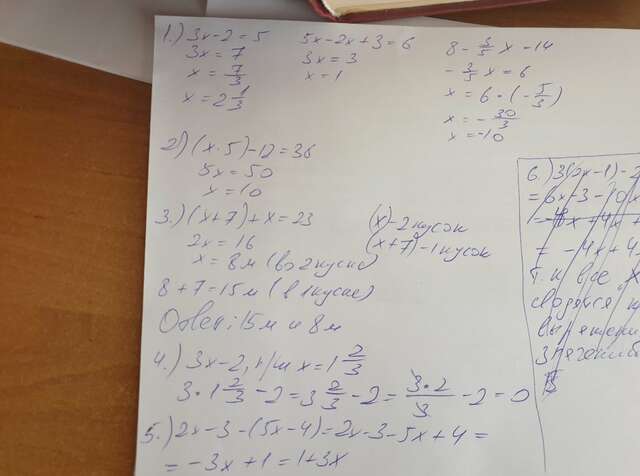 1.) 3x-2=5
3x=7
x=7/3
x=2 1/3
5x-2x+3=6
3x=3
x=1
8-3/5x-14
-3/5x=6
x=6·(-5/3)
x=-30/3
x=-10
2) (x·5)-12=36
5x=50
x=10
3.) (x+7)+x=23
2x=16
x=8м (во 2 куске)
(x)-2 кусок
(x+7)-1 кусок
8+7=15м (в 1 куске)
Ответ: 15м и 8м
4.) 3x-2, при x=1 2/3
3·1 2/3-2=3 2/3-2=3·2/3-2=0
5.) 2x-3-(5x-4)=2x-3-5x+4=
=-3x+1=1+3x
6.) 3(2x-1)-2
=6x-3-10x
-4x+4x+
=-4x+4
т.к все x
сводятся
выражени